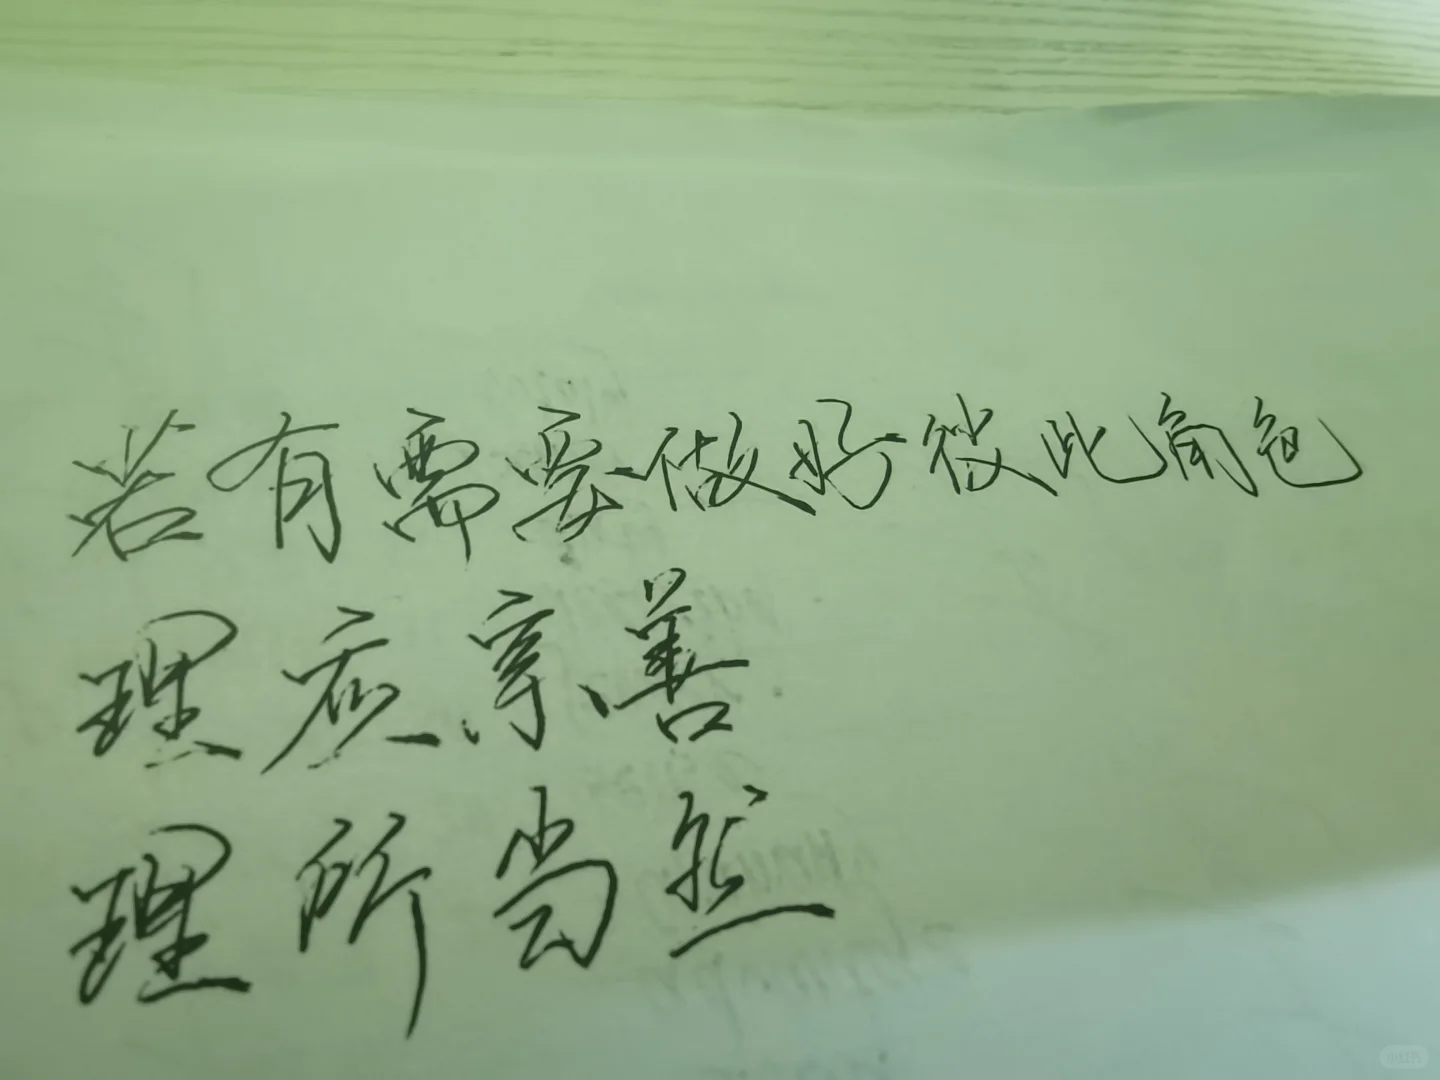 若有需要做好彼此角色
理应亲善
理所当然
小红书